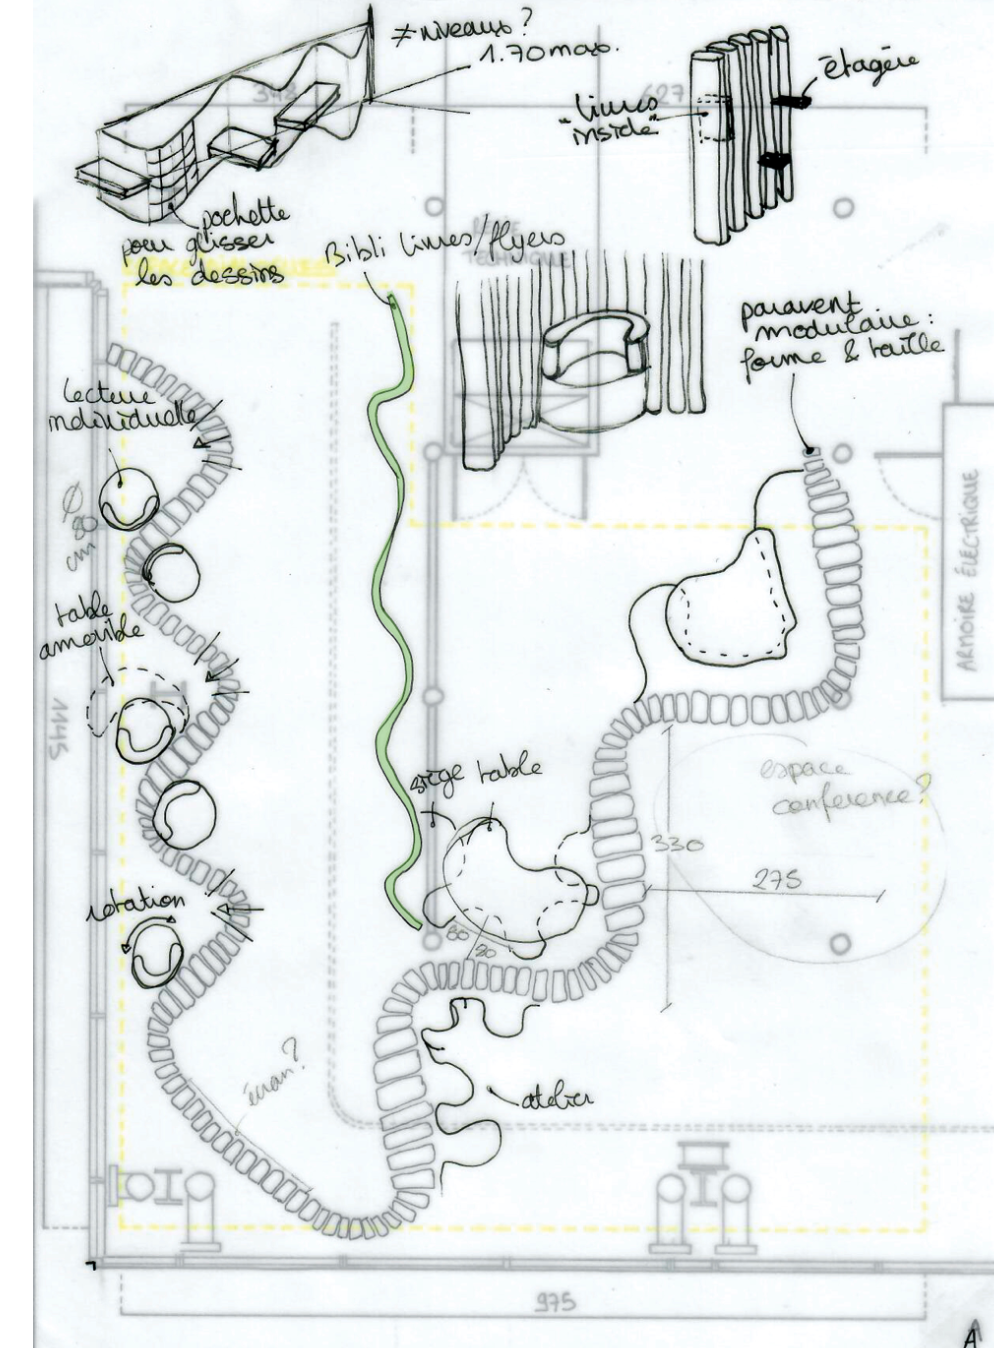 ≠ niveaux ?
1.70 max.
348
627
étagère
"livres
inside"
pochette
pour glisser
les dessins
Bibli livres/flyers
TECHNIQUE
paravent
modulaire :
forme & taille
lecture
individuelle
Ø 80
cm
table
amovible
ARMOIRE ÉLECTRIQUE
1145
siège table
espace
conférence ?
330
275
rotation
80
écran ?
atelier
975
A